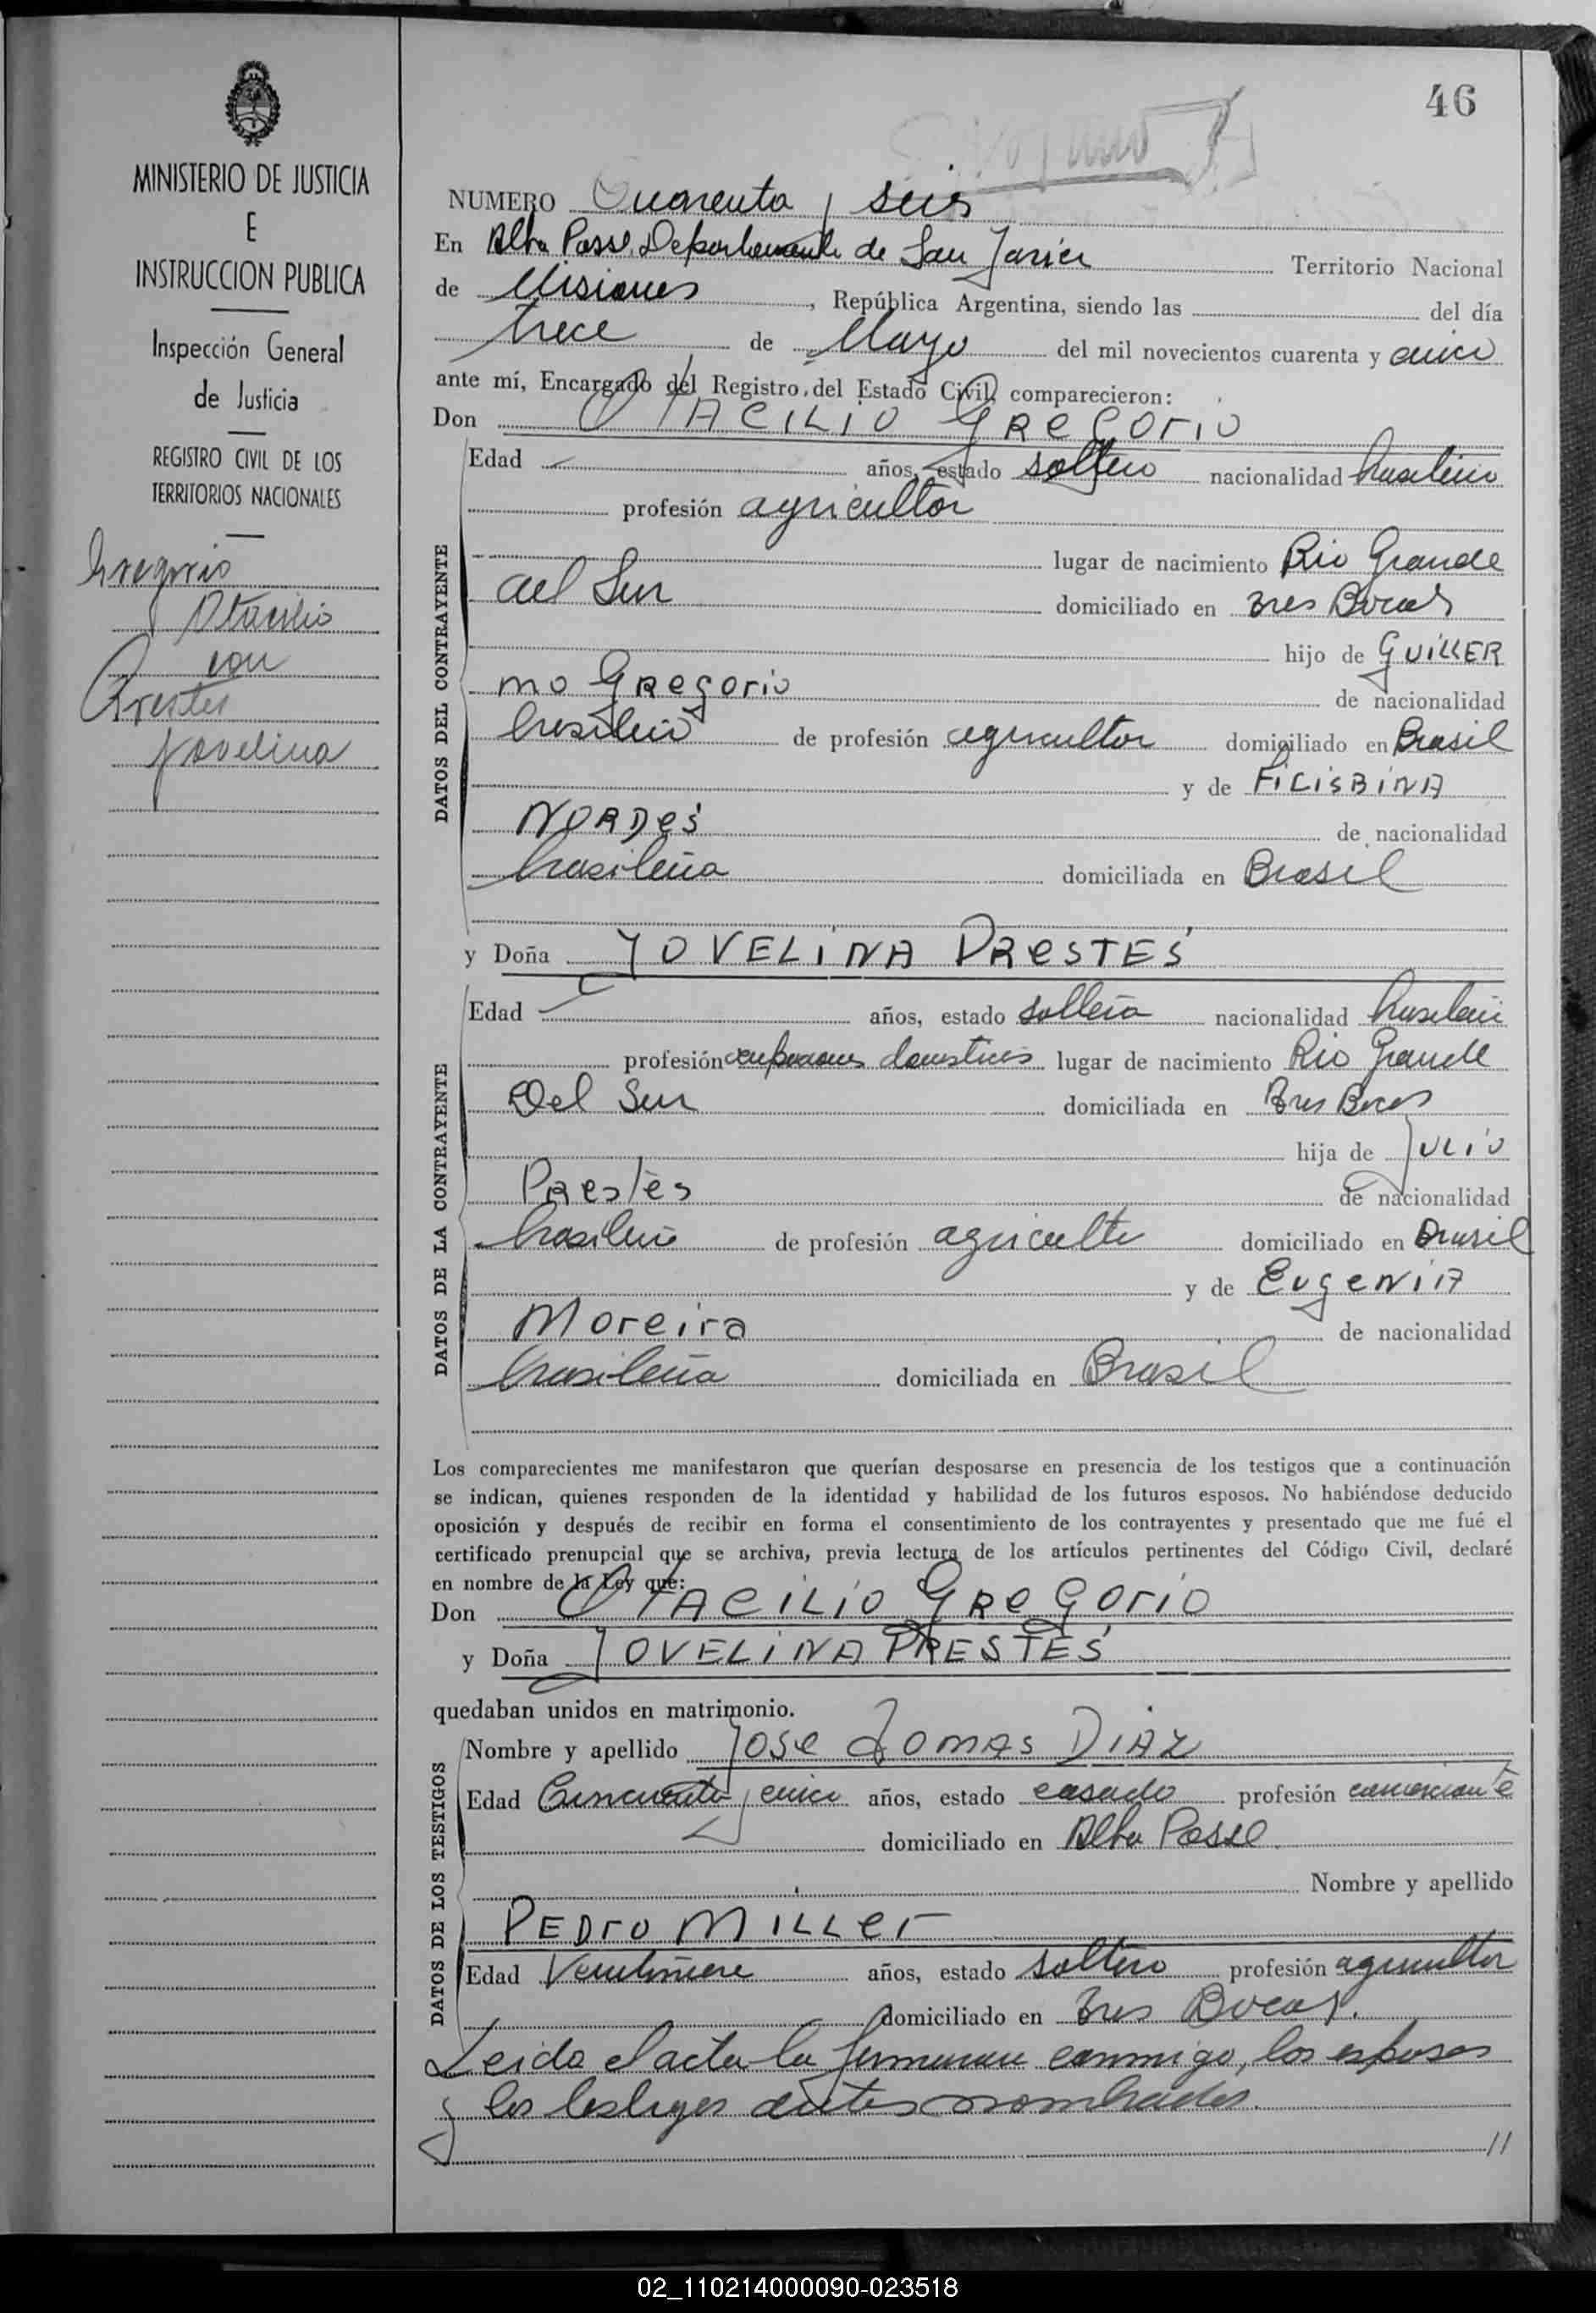 46
MINISTERIO DE JUSTICIA
E
INSTRUCCION PUBLICA
Inspección General
de Justicia
REGISTRO CIVIL DE LOS
TERRITORIOS NACIONALES
Gregorio
Otacilio
con
Prestes
Jovelina
NUMERO Cuarenta y seis
En Alba Posse, Departamento de San Javier Territorio Nacional
de Misiones, República Argentina, siendo las del día
trece de Mayo del mil novecientos cuarenta y cinco
ante mí, Encargado del Registro del Estado Civil, comparecieron:
Don OTACILIO GREGORIO
DATOS DEL CONTRAYENTE
Edad años, estado soltero nacionalidad brasileño
profesión agricultor
lugar de nacimiento Rio Grande
del Sur domiciliado en Tres Bocas
hijo de GUILLER
mo Gregorio de nacionalidad
brasileño de profesión agricultor domiciliado en Brasil
y de FILISBINA
NORDES de nacionalidad
brasileña domiciliada en Brasil
y Doña JOVELINA PRESTES
DATOS DE LA CONTRAYENTE
Edad años, estado soltera nacionalidad brasileña
profesión ocupaciones domesticas lugar de nacimiento Rio Grande
Del Sur domiciliada en Tres Bocas
hija de JULIO
Prestes de nacionalidad
brasileño de profesión agricultor domiciliado en Brasil
y de EUGENIA
Moreira de nacionalidad
brasileña domiciliada en Brasil
Los comparecientes me manifestaron que querían desposarse en presencia de los testigos que a continuación
se indican, quienes responden de la identidad y habilidad de los futuros esposos. No habiéndose deducido
oposición y después de recibir en forma el consentimiento de los contrayentes y presentado que me fué el
certificado prenupcial que se archiva, previa lectura de los artículos pertinentes del Código Civil, declaré
en nombre de la Ley que:
Don OTACILIO GREGORIO
y Doña JOVELINA PRESTES
quedaban unidos en matrimonio.
DATOS DE LOS TESTIGOS
Nombre y apellido JOSE TOMAS DIAZ
Edad Cincuenta y cinco años, estado casado profesión comerciante
domiciliado en Alba Posse
Nombre y apellido
PEDRO MILLER
Edad Veintinueve años, estado soltero profesión agricultor
domiciliado en Tres Bocas.
Leida el acta la firmaron conmigo, los esposos
y los testigos antes nombrados.
//
02_110214000090-023518